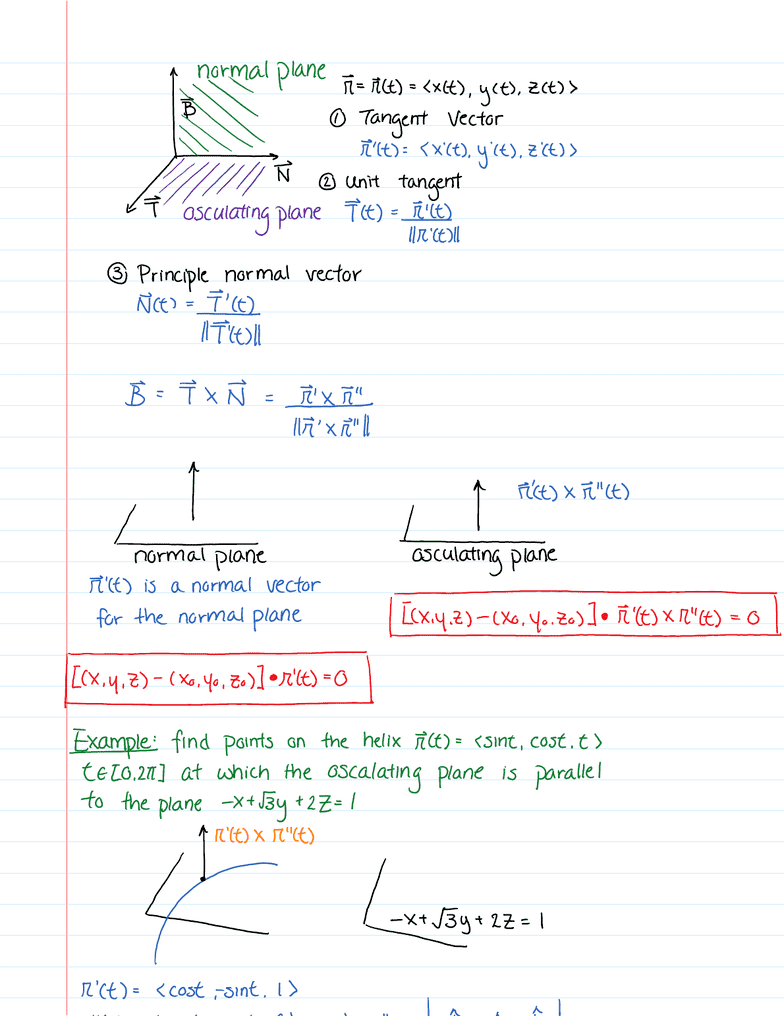 normal plane
B⃗
N⃗
T⃗
osculating plane
r⃗ = r⃗(t) = <x(t), y(t), z(t)>
① Tangent Vector
r⃗'(t) = <x'(t), y'(t), z'(t)>
② Unit tangent
T⃗(t) = r⃗'(t) / ||r'(t)||
③ Principle normal vector
N⃗(t) = T⃗'(t) / ||T⃗'(t)||
B⃗ = T⃗ × N⃗ = r⃗' × r⃗'' / ||r⃗' × r⃗''||
normal plane
r⃗'(t) is a normal vector
for the normal plane
[(x,y,z) - (x₀, y₀, z₀)] • r'(t) = 0
r⃗'(t) × r⃗''(t)
osculating plane
[(x,y,z) - (x₀, y₀, z₀)] • r⃗'(t) × r''(t) = 0
Example: find points on the helix r⃗(t) = <sint, cost, t>
t∈[0,2π] at which the oscalating plane is parallel
to the plane -x+√3y+2z=1
r'(t) × r''(t)
-x+√3y+2z=1
r'(t) = <cost, -sint, 1>